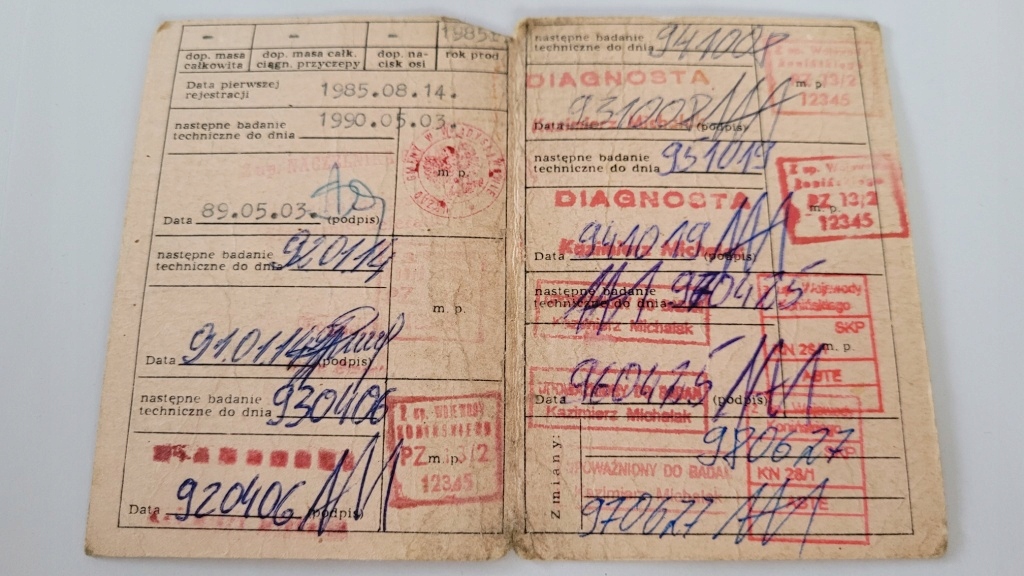 - - - 1985
dop. masa całkowita
dop. masa całk. ciągn. przyczepy
dop. nacisk osi
rok prod
Data pierwszej
rejestracji 1985.08.14.
następne badanie
techniczne do dnia 1990.05.03.
m. p.
Data 89.05.03. (podpis)
następne badanie
techniczne do dnia 920114
m. p.
Data 910114 (podpis)
następne badanie
techniczne do dnia 930406
Z up. WOJEWODY
KONIŃSKIEGO
PZ m. p. /2
12345
Data 920406 (podpis)
następne badanie
techniczne do dnia 941008
Z up. Wojewody
Konińskiego
PZ 13/2
12345
m. p.
DIAGNOSTA
Kazimierz Michalak
Data 931008 (podpis)
następne badanie
techniczne do dnia 951019
Z up. Wojewody
Konińskiego
PZ 13/2
12345
m. p.
DIAGNOSTA
Kazimierz Michalak
Data 941019 (podpis)
następne badanie
techniczne do dnia 970425
Kazimierz Michalak
Wojewody
Konińskiego
SKP
KN 28/
m. p.
ABTE
UPOWAŻNIONY DO BADAŃ
Kazimierz Michalak
Data 960425 (podpis)
Zmiany:
980627
SKP
UPOWAŻNIONY DO BADAŃ
Kazimierz Michalak
KN 28/1
ABTE
970627